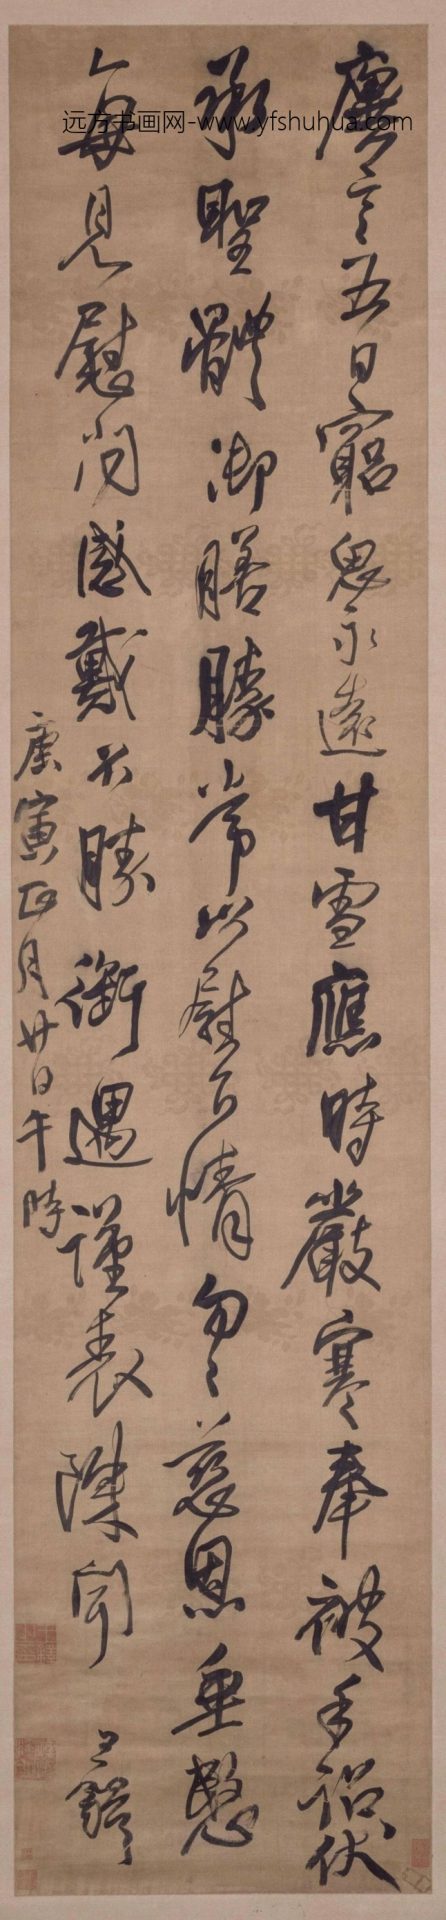 远方书画网-www.yfshuhua.com
廙言五日窮思永遠甘雪應時嚴寒奉被手詔伏
承聖體御膳勝常以慰下情勿〻慈恩垂愍
每見慰問感戴不勝銜遇謹表陳聞 王鐸
庚寅正月廿日午時